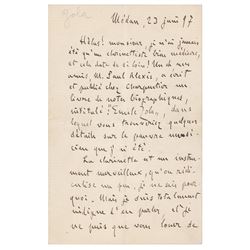 Zola
Médan, 23 juin 97
Hélas! monsieur, je n'ai jamais
été qu'un clarinettiste bien médiocre,
et cela date de si loin! Un de mes
amis, M. Paul Alexis, a écrit
et publié chez Charpentier un
livre de notes biographiques,
intitulé: Emile Zola, dans
lequel vous trouverez quelques
détails sur le pauvre musi-
cien que j'ai été.
La clarinette est un instru-
ment merveilleux, qu'on ridi-
culise un peu, je ne sais pour-
quoi. Mais je suis totalement
indigne d'en parler, et je
ne puis que vous louer de